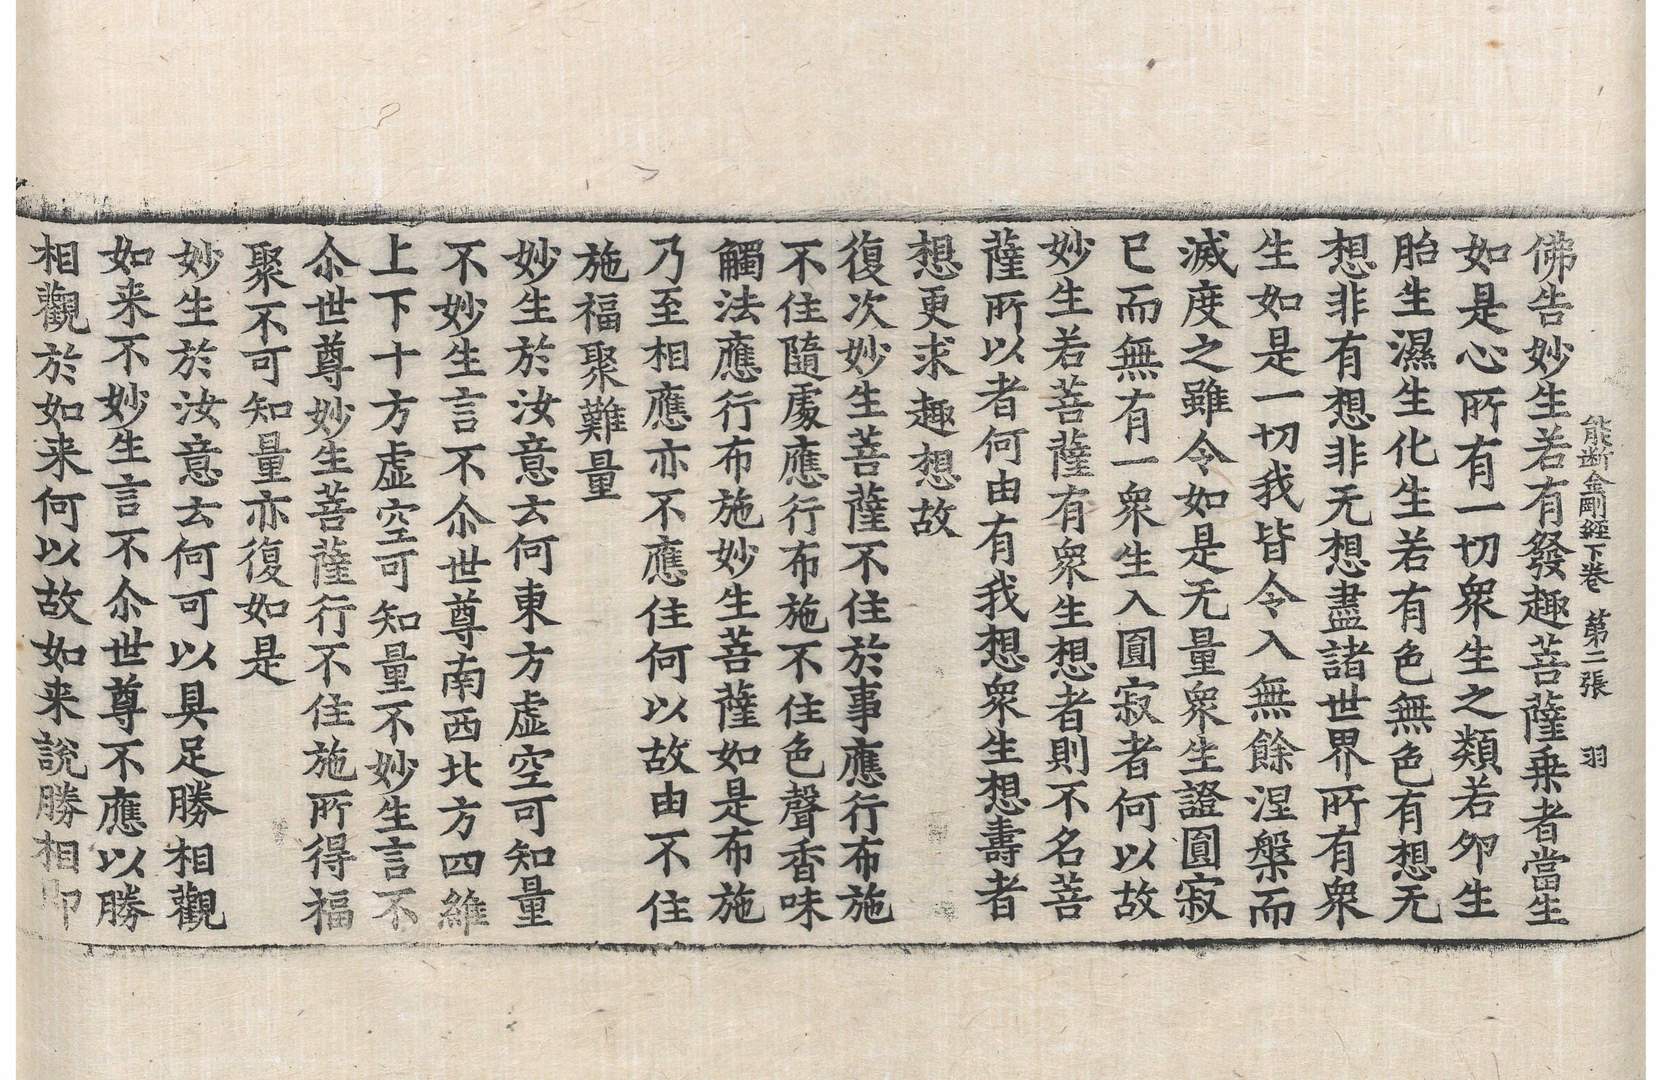 能断金剛經下卷 第二張 羽
佛告妙生若有發趣菩薩乗者當生
如是心所有一切衆生之類若卵生
胎生濕生化生若有色無色有想无
想非有想非无想盡諸世界所有衆
生如是一切我皆令入無餘涅槃而
滅度之雖令如是无量衆生證圓寂
已而無有一衆生入圓寂者何以故
妙生若菩薩有衆生想者則不名菩
薩所以者何由有我想衆生想壽者
想更求趣想故
復次妙生菩薩不住於事應行布施
不住隨處應行布施不住色聲香味
觸法應行布施妙生菩薩如是布施
乃至相應亦不應住何以故由不住
施福聚難量
妙生於汝意云何東方虛空可知量
不妙生言不尒世尊南西北方四維
上下十方虛空可知量不妙生言不
尒世尊妙生菩薩行不住施所得福
聚不可知量亦復如是
妙生於汝意云何可以具足勝相觀
如来不妙生言不尒世尊不應以勝
相觀於如来何以故如来說勝相即